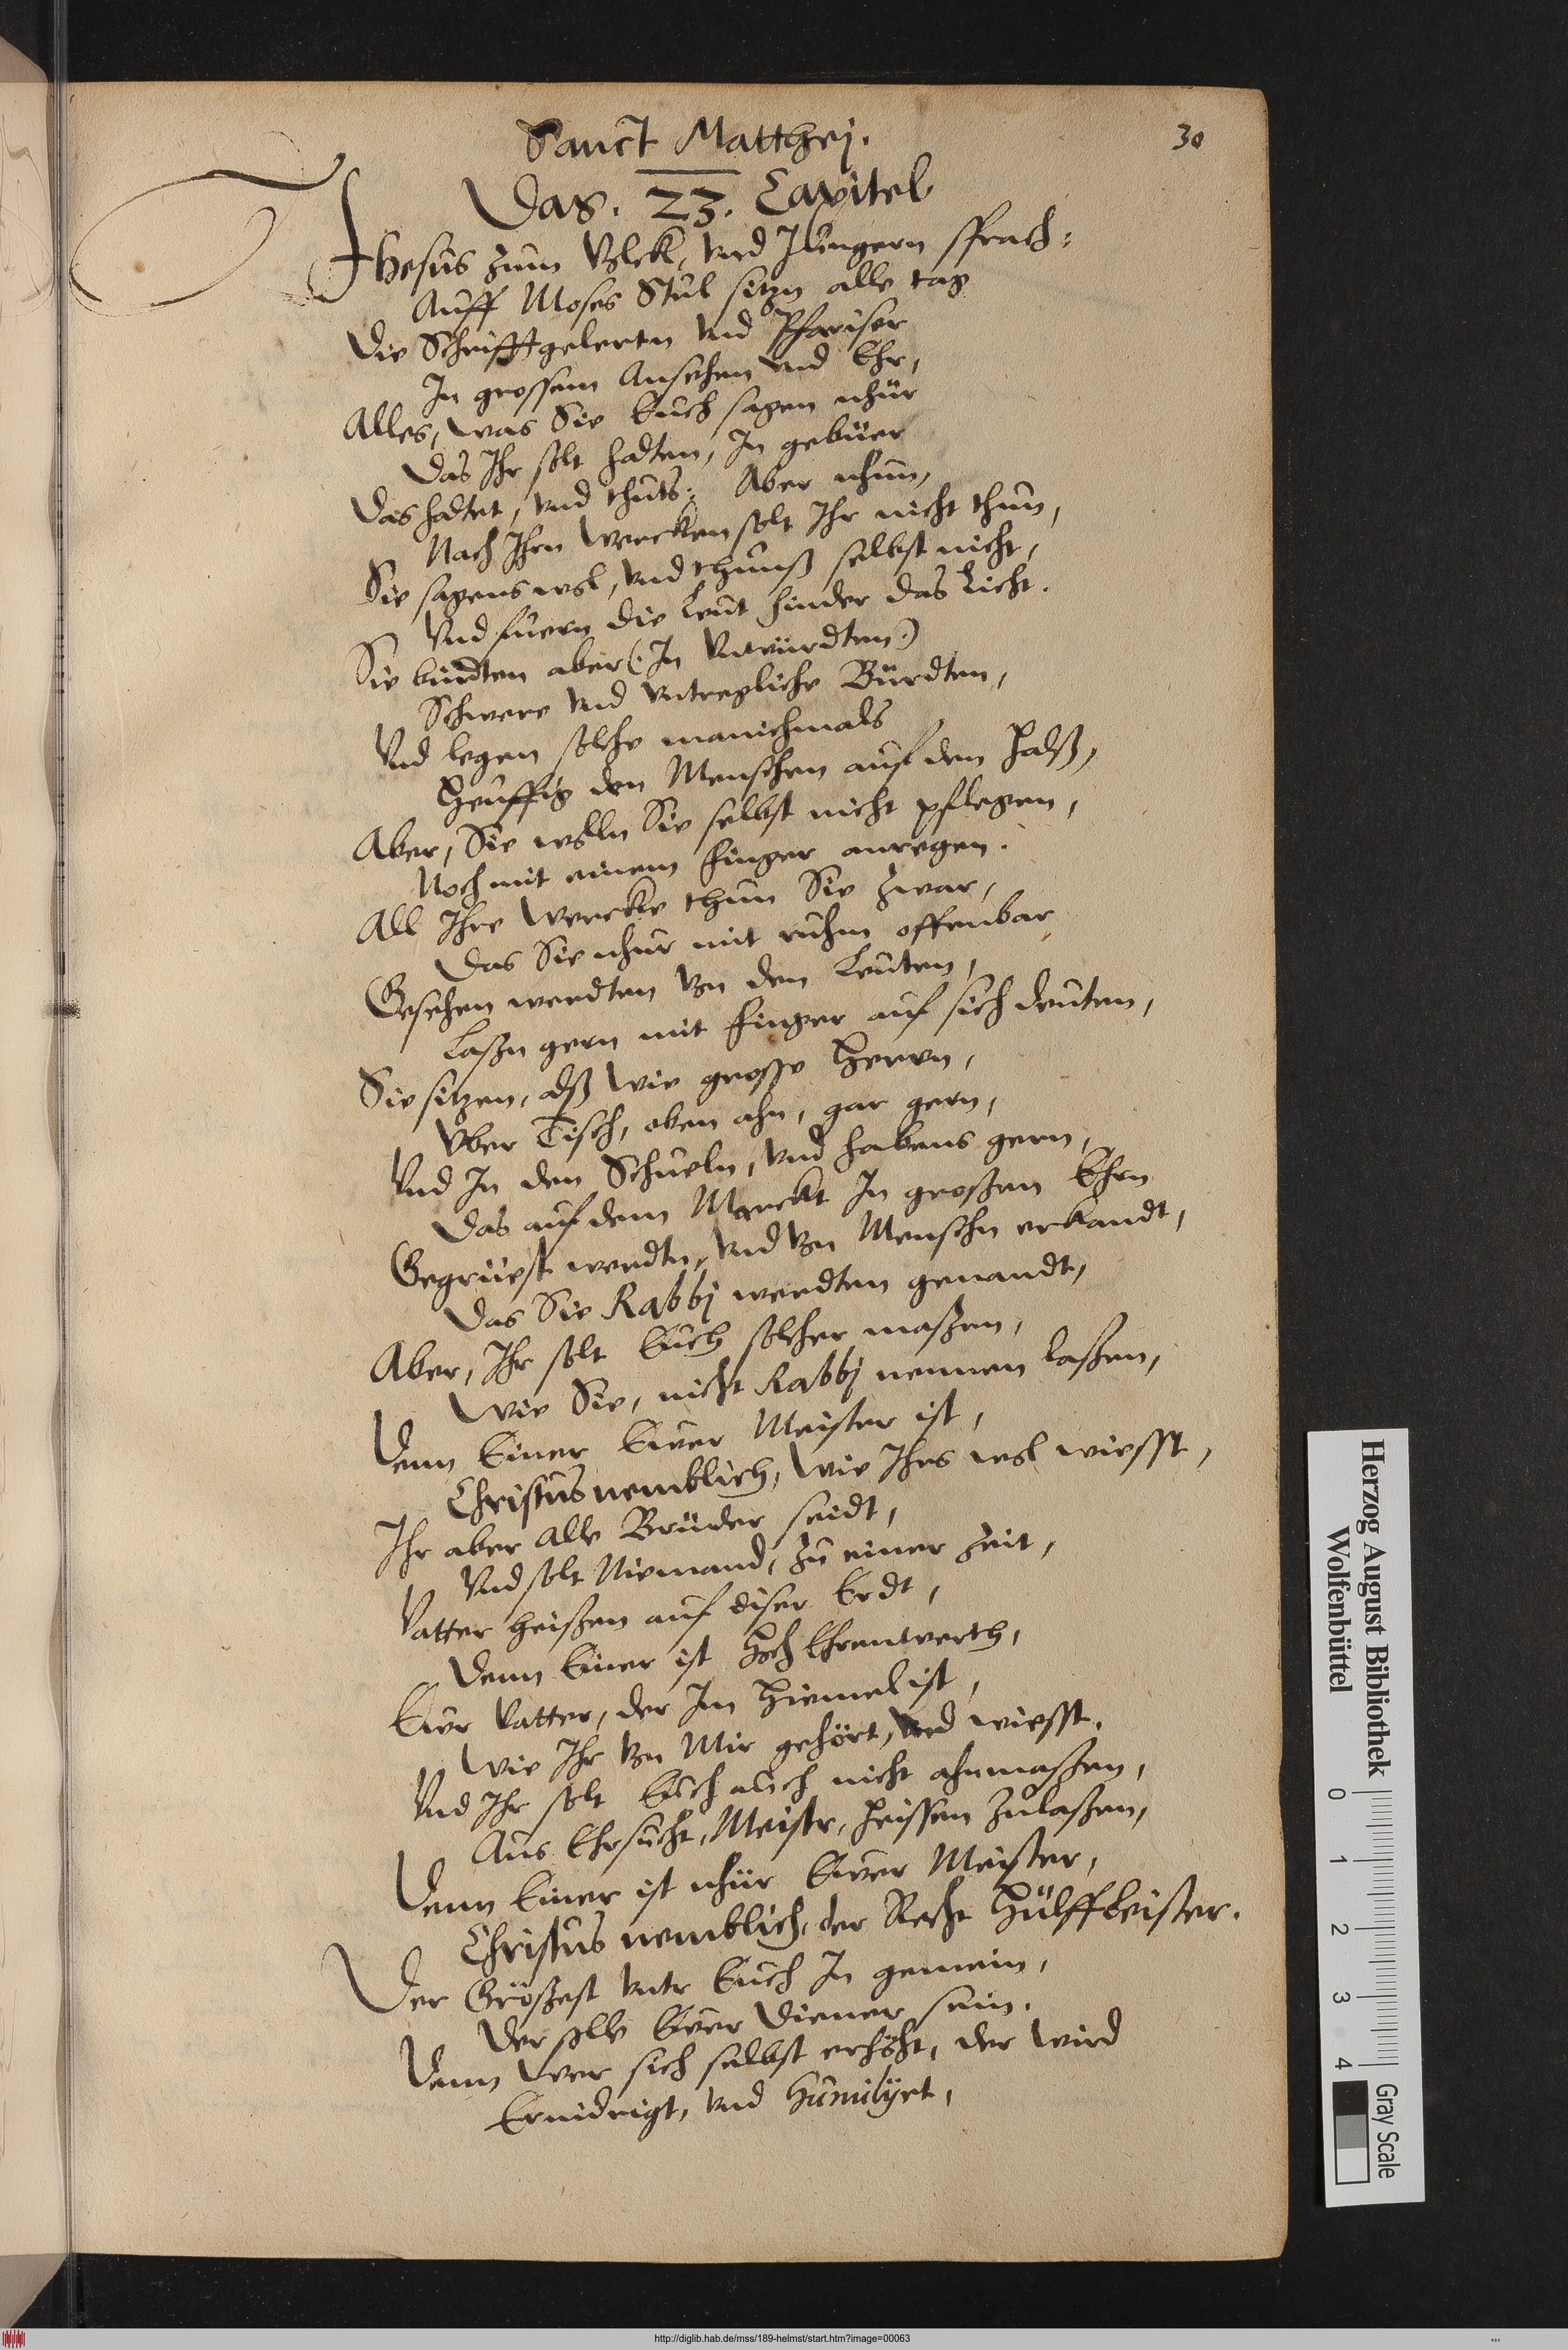 30
Sanct Matthej.
Das. 23. Capitel
Jhesus zum Volck, vnd Jüngern sprach:
Auff Moses Stul sitzn alle tag
Die Schrifftgelertn vnd Phariser
In grossem Ansehen vnd Ehr,
Alles, was Sie Euch sagen nhür
Das Ihr solt halten, In gebüer
Das haltet, vnd thuts: Aber nhun,
Nach Ihrn Wercken solt Ihr nicht thun,
Sie sagens wol, vnd thunß selbst nicht,
Vnd fuern die Leut hinder das Licht.
Sie bindten aber (: In Vnwürdten :)
Schwere vnd vntregliche Bürdten,
Vnd legen solche manichmals
Heuffig den Menschen auf den Halß,
Aber, Sie wolln Sie selbst nicht pflegen,
Noch mit einem finger anregen.
All Ihre Wercke thun Sie zwar,
Das Sie nhur mit ruhm offenbar
Gesehen werdten von den Leuten,
Laßn gern mit finger auf sich deuten,
Sie sitzen, alß wie grosse Herrn,
Vber Tisch, oben ahn, gar gern,
Vnd In den Schueln, vnd habens gern,
Das auf dem Marckt In großen Ehrn
Gegrüest werdtn, vnd von Menschn erkandt,
Das Sie Rabbj werdten genandt,
Aber, Ihr solt Euch solcher maßen,
Wie Sie, nicht Rabbj nennen laßen,
Denn Einer Ewer Meister ist,
Christus nemblich, wie Ihrs wol wiesst,
Ihr aber alle Brüder seidt,
Vnd solt Niemand, zu einer Zeit,
Vatter heißen auf diser Erdt,
Denn Einer ist Hoch Ehrenwerth,
Ewr Vatter, der Im Hiemel ist,
Wie Ihr von Mir gehört, vnd wiesst.
Vnd Ihr solt Euch auch nicht ahnmaßen,
Aus Ehrsucht, Meistr, heissen zulaßen,
Denn Einer ist nhür Ewer Meister,
Christus nemblich, der Recht Hülffleister.
Der Größest vntr Euch In gemein,
Der solle Ewer Diener sein.
Denn Wer sich selbst erhöht, der wird
Ernidrigt, vnd Humilÿrt,
Herzog August Bibliothek
Wolfenbüttel
0 1 2 3 4
Gray Scale
http://diglib.hab.de/mss/189-helmst/start.htm?image=00063